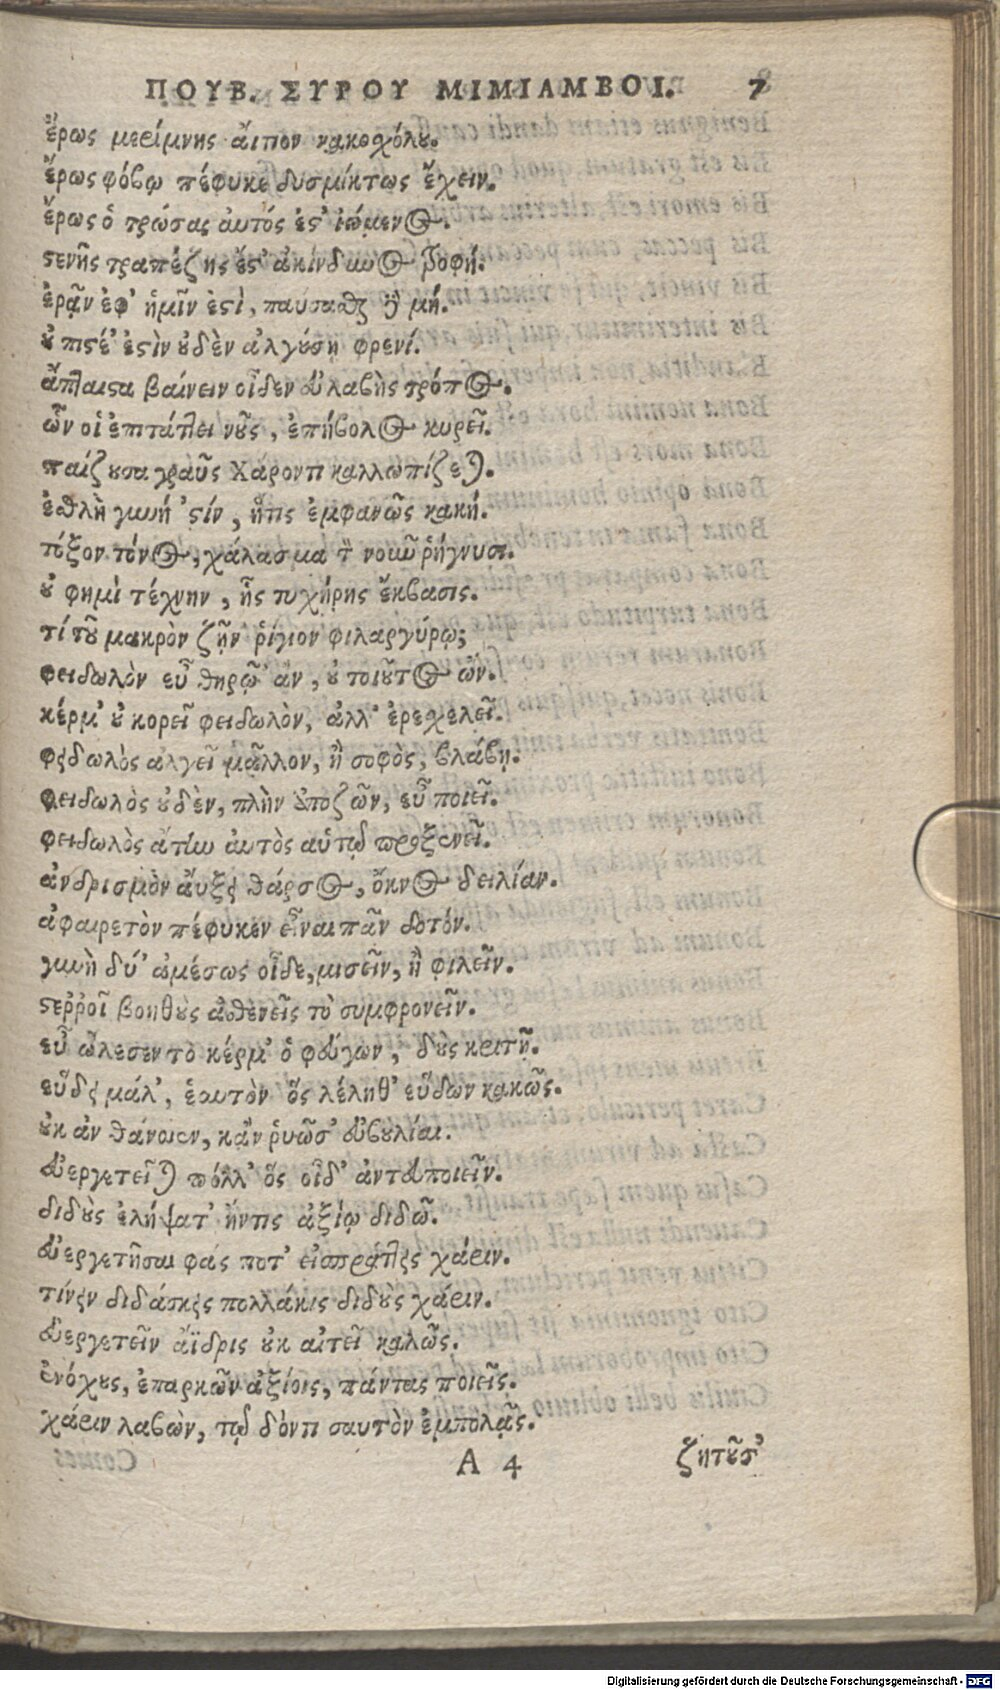 ΠΟΥΒ. ΣΥΡΟΥ ΜΙΜΙΑΜΒΟΙ. 7
ἔρως μερίμνης αἴτιον κακοχόλου.
ἔρως φόβῳ πέφυκε δυσμίκτως ἔχειν.
ἔρως ὁ τρώσας αὐτός ἐστ' ἰώμενος.
στενῆς τραπέζης ἔστ' ἀκίνδυνος ῥοφή.
ἐρᾷν ἐφ' ἡμῖν ἐστὶ, παύσασθαι δὲ μή.
οὐ πιστέ' ἐστὶν οὐδὲν ἀλγούσῃ φρενί.
ἄπταιστα βαίνειν οἶδεν εὐλαβὴς τρόπος.
ὧν οἱ ἐπιτάττει νοῦς, ἐπήβολος κυρεῖ.
παίζουσα γραῦς Χάροντι καλλωπίζεται.
ἐσθλὴ γυνή 'στίν, ἥτις ἐμφανῶς κακή.
τόξον τόνος, χάλασμα τὸν νοῦν ῥήγνυσι.
οὔ φημὶ τέχνην, ἧς τυχήρης ἔκβασις.
τί τοῦ μακρὸν ζῇν ῥίγιον φιλαργύρῳ;
φειδωλὸν εὖ θηρῷ' ἂν, οὐ τοιοῦτος ὤν.
κέρμ' οὐ κορεῖ φειδωλὸν, ἀλλ' ἐρεχελεῖ.
φειδωλὸς ἀλγεῖ μᾶλλον, ἢ σοφὸς, βλάβῃ.
φειδωλὸς οὐδὲν, πλὴν ὑποζῶν, εὖ ποιεῖ.
φειδωλὸς ἄτην αὐτὸς αὑτῷ προξενεῖ.
ἀνδρισμὸν αὔξει θάρσος, ὄκνος δειλίαν.
ἀφαιρετὸν πέφυκεν εἶναι πᾶν δοτόν.
γυνὴ δύ' ἀμέσως οἶδε, μισεῖν, ἢ φιλεῖν.
στεῤῥοῖ βοηθοὺς ἀσθενεῖς τὸ συμφρονεῖν.
εὖ ὤλεσεν τὸ κέρμ' ὁ φεύγων, δοὺς κριτῇ.
εὕδει μάλ', ἑαυτὸν ὃς λέληθ' εὕδων κακῶς.
οὐκ ἂν θάνοιεν, κἂν ῥυῶσ' εὐβουλίαι.
εὐεργετεῖται πόλλ' ὃς οἶδ' ἀντευποιεῖν.
διδοὺς ἐλήψατ' ἥντις ἀξίῳ διδῶ.
εὐεργετῆσαι φάς ποτ' εἰσπράττεις χάριν.
τίνειν διδάσκεις πολλάκις διδοὺς χάριν.
εὐεργετεῖν ἄϊδρις οὐκ αἰτεῖ καλῶς.
ἐνόχους, ἐπαρκῶν ἀξίοις, πάντας ποιεῖς.
χάριν λαβὼν, τῷ δόντι σαυτὸν ἐμπολᾷς.
A 4 ζητοῦσ'
Digitalisierung gefördert durch die Deutsche Forschungsgemeinschaft - DFG